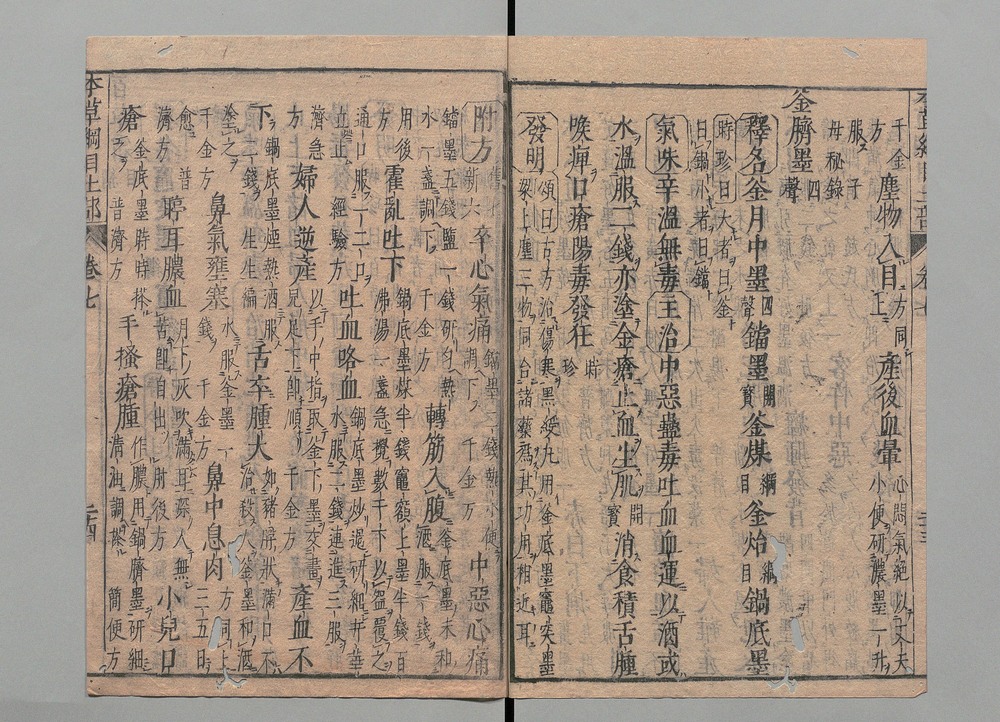 千金方 塵物入目 方同上 產後血暈 心悶氣絕以丈夫小便研濃墨一升
服 子母秘錄
釜臍墨 四聲
釋名 釜月中墨 四聲 鐺墨 開寶 釜煤 綱目 釜炲 綱目 鍋底墨
時珍曰大者曰釜曰鍋小者曰鐺
氣味辛溫無毒 主治中惡蠱毒吐血血運以酒或
水溫服二錢亦塗金瘡止血生肌 開寶 消食積舌腫
喉痺口瘡陽毒發狂 時珍
發明 頌曰古方治傷寒黑奴丸用釜底墨竈突墨梁上塵三物同合諸藥為其功用相近耳
附方 新六 卒心氣痛 鐺墨二錢熱小便調下 千金方 中惡心痛
鐺墨五錢鹽一錢研勻熱水一盞調下 千金方 轉筋入腹 釜底墨末和酒服一錢
用後方 霍亂吐下 鍋底墨煤半錢竈額上墨半錢百沸湯一盞急攪數千下以盌覆之
通口服一二口立止 經驗方 吐血咯血 鍋底墨炒過研細井華水服二錢連進三服
濟急方 婦人逆產 以手中指取釜下墨交畫兒足下即順 千金方 產血不
下 鍋底墨煙熱酒服二錢 生生編 舌卒腫大 如豬脬狀滿口不治殺人釜墨和酒
塗之 千金方 鼻氣壅塞 水服釜墨一錢 千金方 鼻中息肉 方同上三五日
愈 普濟方 聤耳膿血 月下灰吹滿耳深入無苦即自出 肘後方 小兒口
瘡 釜底墨時時搽之 普濟方 手搔瘡腫 作膿用鍋臍墨研細清油調搽 簡便方
本草綱目土部 卷七 二十四